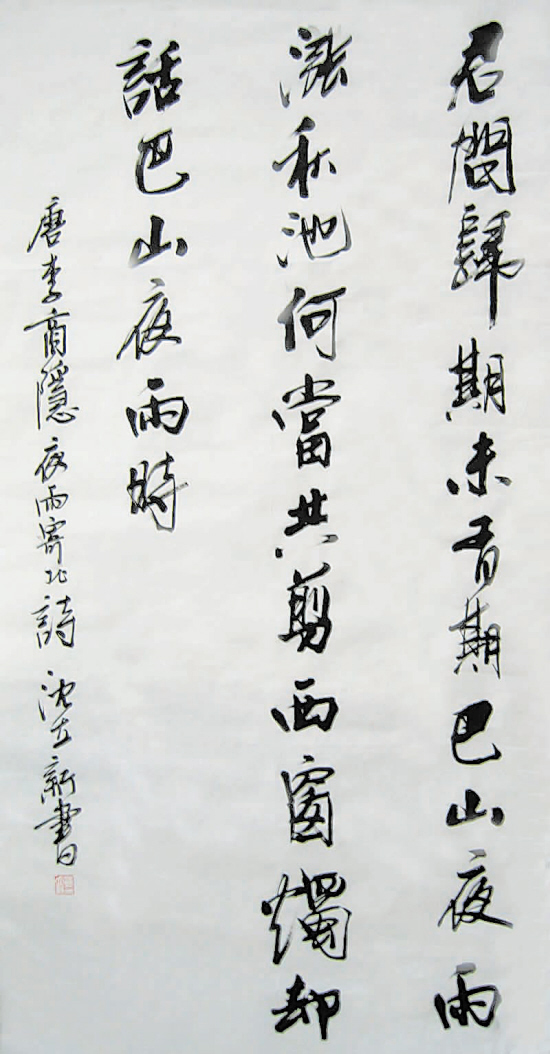 君問歸期未有期巴山夜雨
漲秋池何當共剪西窗燭却
話巴山夜雨時
唐李商隱夜雨寄北詩 沈立新書